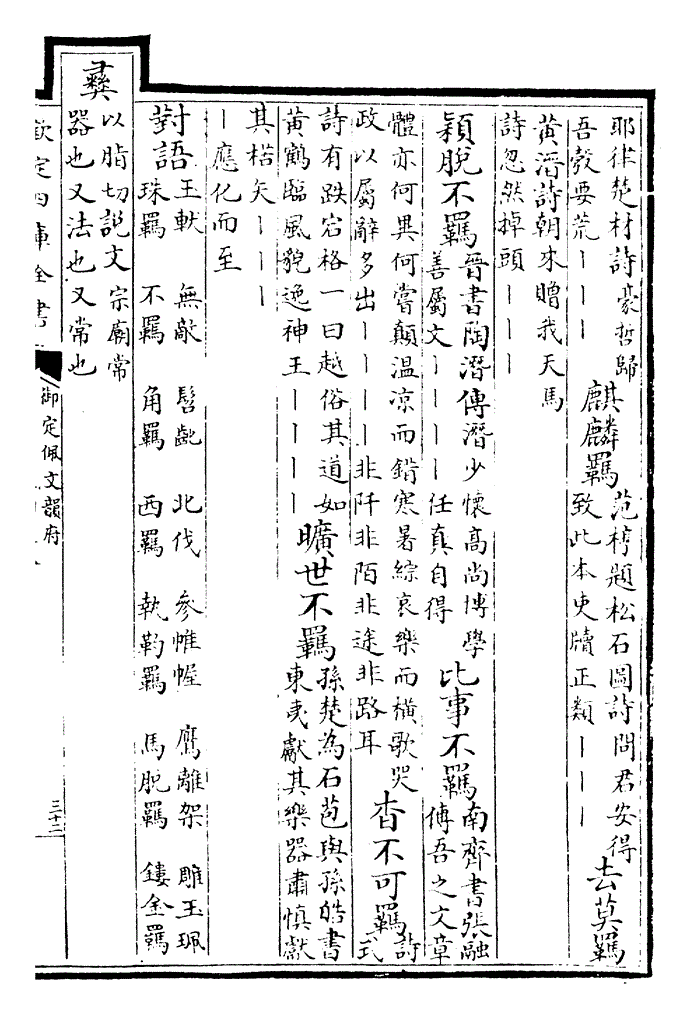 耶律楚材詩豪哲歸
吾彀要荒｜｜｜
麒麟羈
范梈題松石圖詩問君安得
致此本吏牘正類｜｜｜
去莫羈
黃溍詩朝來贈我天馬
詩忽然掉頭｜｜｜
穎脫不羈
晉書陶潛傳潛少懷高尚博學
善屬文｜｜｜｜任真自得
比事不羈
南齊書張融
傳吾之文章
體亦何異何嘗顛溫凉而錯寒暑綜哀樂而橫歌哭
政以屬辭多出｜｜｜｜非阡非陌非途非路耳
杳不可羈
詩
式
詩有跌宕格一曰越俗其道如
黃鶴臨風貌逸神王｜｜｜｜
曠世不羈
孫楚為石苞與孫皓書
東夷獻其樂器肅慎獻
其楛矢｜｜｜
｜應化而至
對語
玉軑 無敵 髻齔 北伐 參帷幄 鷹離架 雕玉珮
珠羈 不羈 角羈 西羈 執靮羈 馬脫羈 鏤金羈
彝
以脂切說文宗廟常
器也又法也又常也
欽定四庫全書
御定佩文韻府
三十二